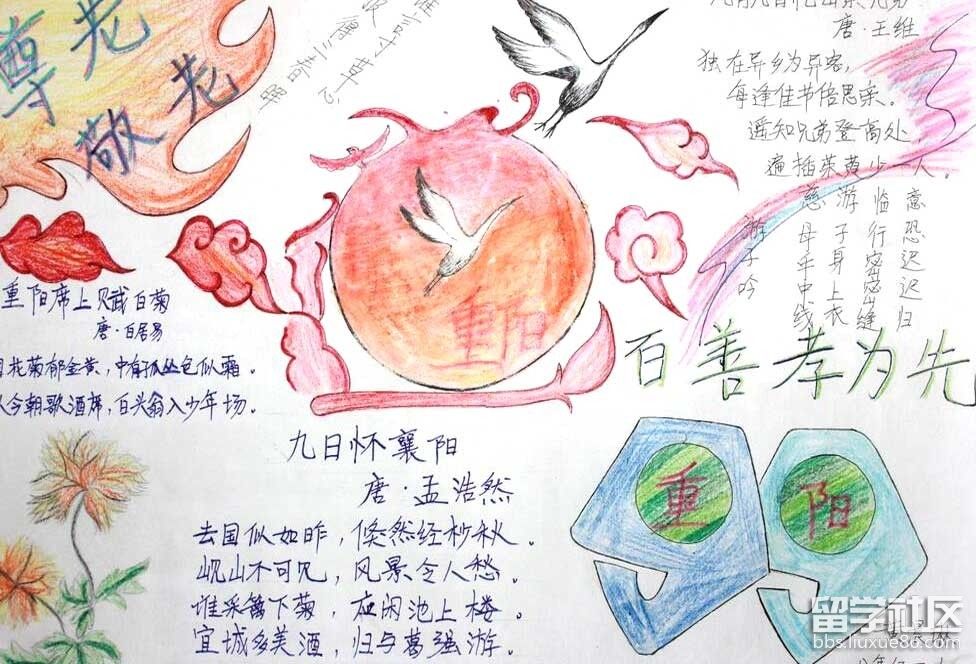 尊老
敬老
谁言寸草心
报得三春晖
唐·王维
独在异乡为异客,
每逢佳节倍思亲。
遥知兄弟登高处,
遍插茱萸少一人。
游子吟
慈母手中线
游子身上衣
临行密密缝
意恐迟迟归
重阳席上赋白菊
唐·白居易
花菊郁金黄,中有孤丛色似霜。
今朝歌酒席,白头翁入少年场。
重阳
百善孝为先
九日怀襄阳
唐·孟浩然
去国似如昨,倏然经杪秋。
岘山不可见,风景令人愁。
谁采篱下菊,应闲池上楼。
宜城多美酒,归与葛强游。
重
阳
留学社区
bbs.liuxue86.com